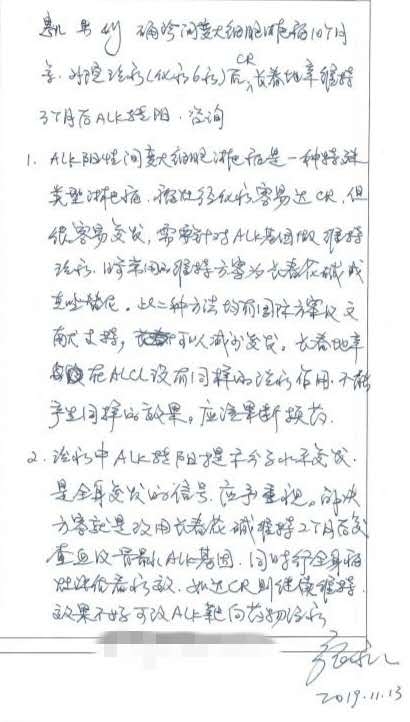 患儿 男 6y 确诊间变大细胞淋巴瘤10个月
余. 规范治疗(化疗6疗)后CR, 长春地辛维持
3个月后ALK转阳. 咨询
1. ALK阳性间变大细胞淋巴瘤是一种特殊
类型淋巴瘤. 病灶经化疗容易达CR, 但
很容易复发, 需要针对ALK基因做维持
治疗. 目前常用的维持方案为长春花碱或
克唑替尼. 此二种方法均有国际方案及文
献支持, 可以减少复发. 长春地辛
在ALCL没有同样的治疗作用. 不能
产生同样的效果. 应该果断换药.
2. 治疗中ALK转阳提示分子水平复发.
是全身复发的信号. 应予重视. 解决
方案就是改用长春花碱维持2个月后复
查血及骨髓ALK基因. 同时行全身病
灶评估看疗效. 如达CR则继续维持.
效果不好可改ALK靶向药物治疗
2019.11.13